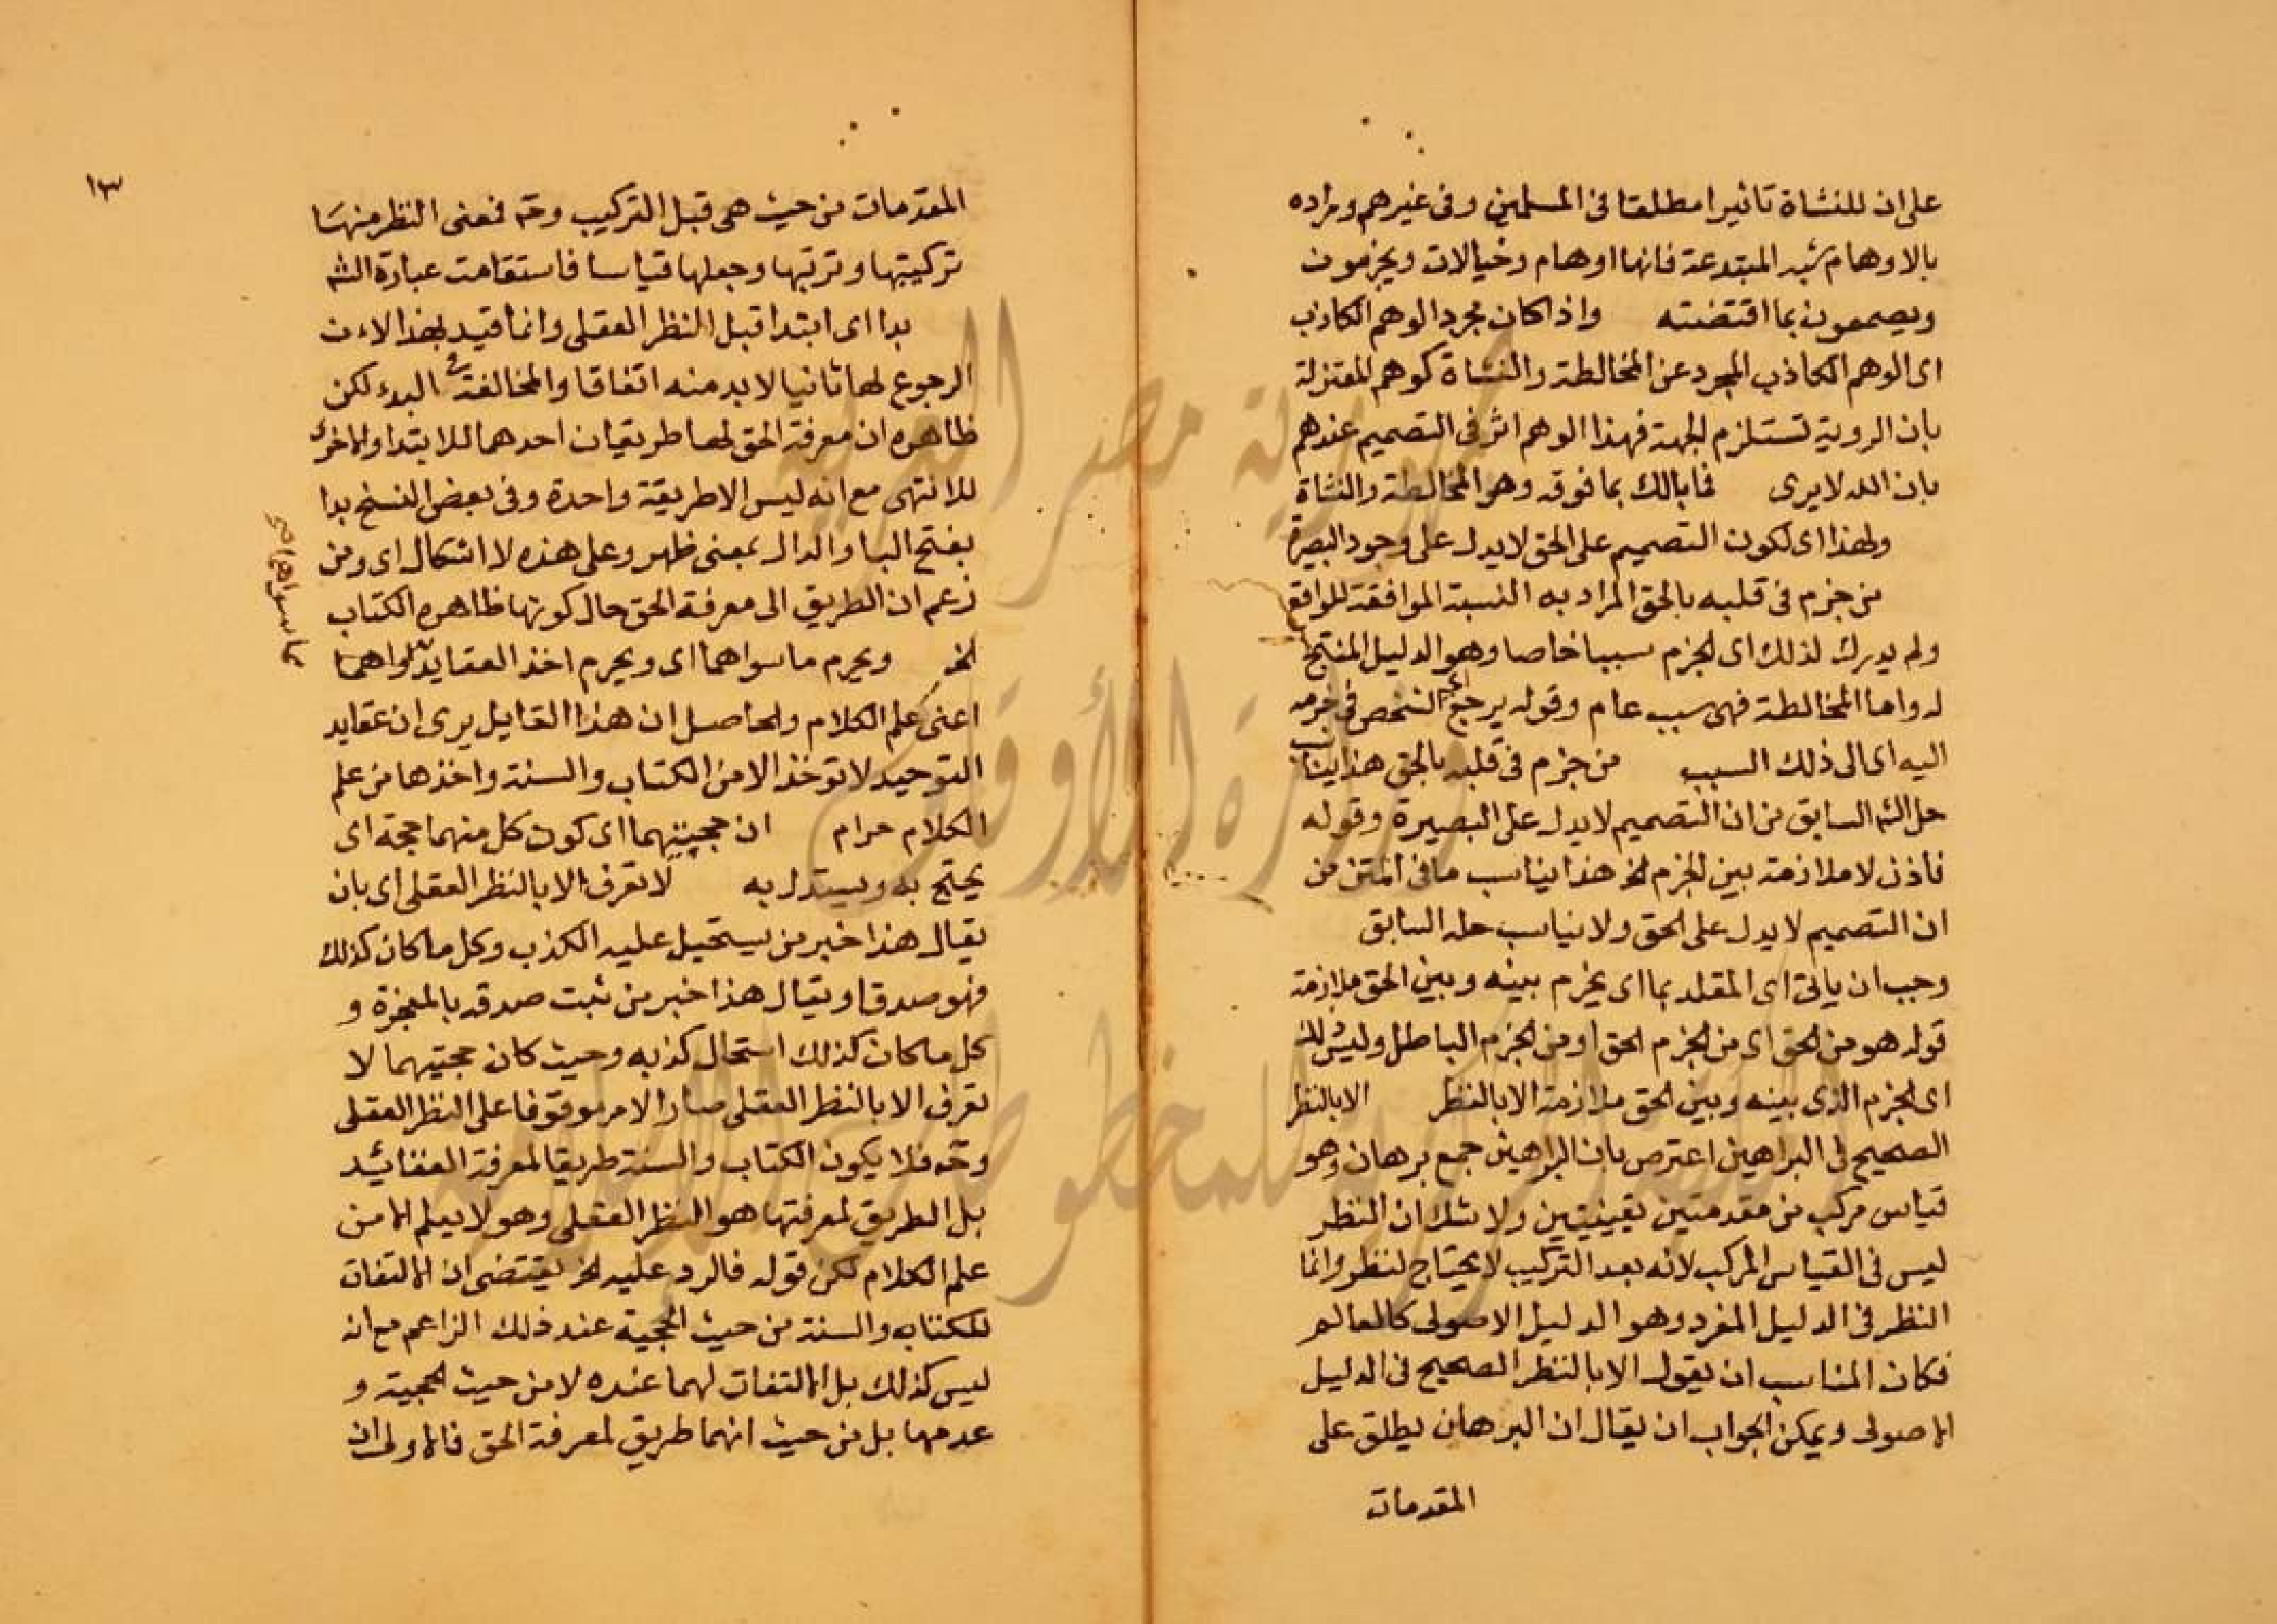 على ان للنشاة تاثيرا مطلقا فى المسلمين وفى غيرهم ومراده
بالاوهام شبه المبتدعة فانها اوهام وخيالات ويجزمون
ويصممون بما اقتضته واذا كان مجرد الوهم الكاذب
اى الوهم الكاذب المجرد عن المخالطة والنشاة كوهم المعتزلة
بان الروية تستلزم الجهة فهذا الوهم اثر فى التصميم عندهم
بان الله لا يرى فما بالك بما فوقه وهو المخالطة والنشاة
ولهذا اى لكون التصميم على الحق لا يدل على وجود البصيرة
من جزم فى قلبه بالحق المراد به النسبة الموافقة للواقع
ولم يدرك لذلك اى الجزم سببا خاصا وهو الدليل المنتج
له واما المخالطة فهى سبب عام وقوله يرجع الشخص فى جزمه
اليه اى الى ذلك السبب من جزم فى قلبه بالحق هذا يناسب
حل الشه السابق من ان التصميم لا يدل على البصيرة وقوله
فاذن لا ملازمة بين الجزم الخ هذا يناسب ما فى المتن من
ان التصميم لا يدل على الحق ولا يناسب حله السابق
وجب ان ياتى اى المقلد بما اى بجزم بينه وبين الحق ملازمة
قوله هو من الحق اى من الجزم الحق او من الجزم الباطل وليس ذلك
اى الجزم الذى بينه وبين الحق ملازمة الا بالنظر الا بالنظر
الصحيح فى البراهين اعترض بان البراهين جمع برهان وهو
قياس مركب من مقدمتين يقينيتين ولا شك ان النظر
ليس فى القياس المركب لانه بعد التركيب لا يحتاج لنظر وانما
النظر فى الدليل المفرد وهو الدليل الاصولى كالعالم
فكان المناسب ان يقول الا بالنظر الصحيح فى الدليل
الاصولى ويمكن الجواب ان يقال ان البرهان يطلق على
المقدمات
١٣
المقدمات من حيث هى قبل التركيب وحه فمعنى النظر منها
تركيبها وترتبها وجعلها قياسا فاستقامت عبارة الشه
بدا اى ابتدا قبل النظر العقلى وانما قيد بهذا لان
الرجوع لها ثانيا لا بد منه اتفاقا والمخالفة فى البدء لكن
ظاهره ان معرفة الحق لها طريقان احدهما للابتدا والاخرى
للانتهى مع انه ليس الا طريقة واحدة وفى بعض النسخ بدا
بفتح البا والدال بمعنى ظهر وعلى هذه لا اشكال اى ومن
زعم ان الطريق الى معرفة الحق حال كونها ظاهره الكتاب
الخ ويحرم ما سواهما اى ويحرم اخذ العقايد سواهما
اعنى علم الكلام والحاصل ان هذا القايل يرى ان عقايد
التوحيد لا توخذ الا من الكتاب والسنة واخذها من علم
الكلام حرام ان حجيتهما اى كون كل منهما حجة اى
يحتج به ويستدل به لا تعرف الا بالنظر العقلى اى بان
يقال هذا خبر من يستحيل عليه الكذب وكل ما كان كذلك
فهو صدق او يقال هذا خبر من ثبت صدقه بالمعجزة و
كل ما كان كذلك استحال كذبه وحيث كان حجيتهما لا
تعرف الا بالنظر العقلى صار الامر موقوفا على النظر العقلى
وحه فلا يكون الكتاب والسنة طريقا لمعرفة العقائد
بل الطريق لمعرفتها هو النظر العقلى وهو لا يعلم الا من
علم الكلام لكن قوله فالرد عليه الخ يقتضى ان الالتفات
للكتاب والسنة من حيث الحجية عند ذلك الزاعم مع انه
ليس كذلك بل الالتفات لهما عنده لا من حيث الحجية و
عدمها بل من حيث انهما طريق لمعرفة الحق فالاولى ان
جمهورية مصر العربية
وزارة الأوقاف
المكتبة المركزية للمخطوطات الإسلامية